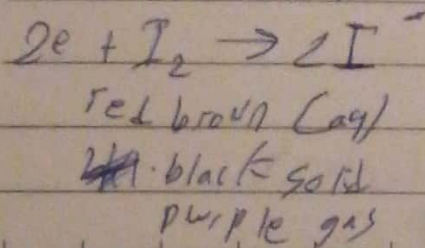 2e + I₂ → 2I⁻
red brown (aq)
black solid
purple gas